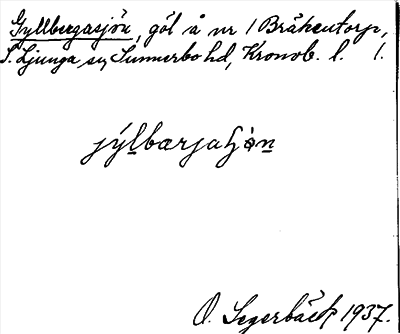 Gyllbergasjön, göl å nr 1 Bråkentorp,
S. Ljunga sn, Sunnerbo hd, Kronob. l. 1.
jýlbærjaɧön
O. Segerbäck 1937.